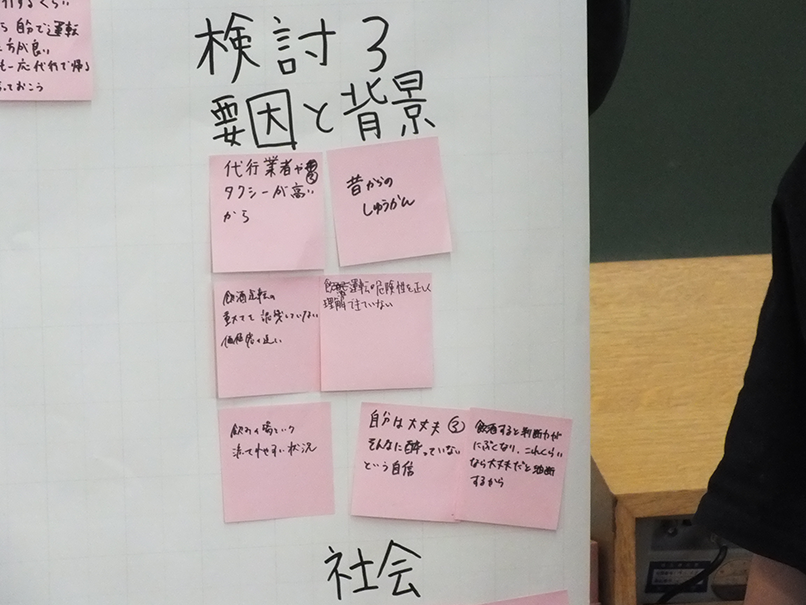 行するくらい
ら自分で運転
方が良い
も一応代行で帰る
っておこう
検討3
要因と背景
代行業者や③
タクシーが高い
から
昔からの
しゅうかん
飲酒運転の
認識していない
価値感の違い
飲酒運転の危険性を正しく
理解できていない
飲みの場という
流されやすい状況
自分は大丈夫③
そんなに酔っていない
という自信
飲酒すると判断力が
にぶくなり、これくらい
なら大丈夫だと油断
するから
社会